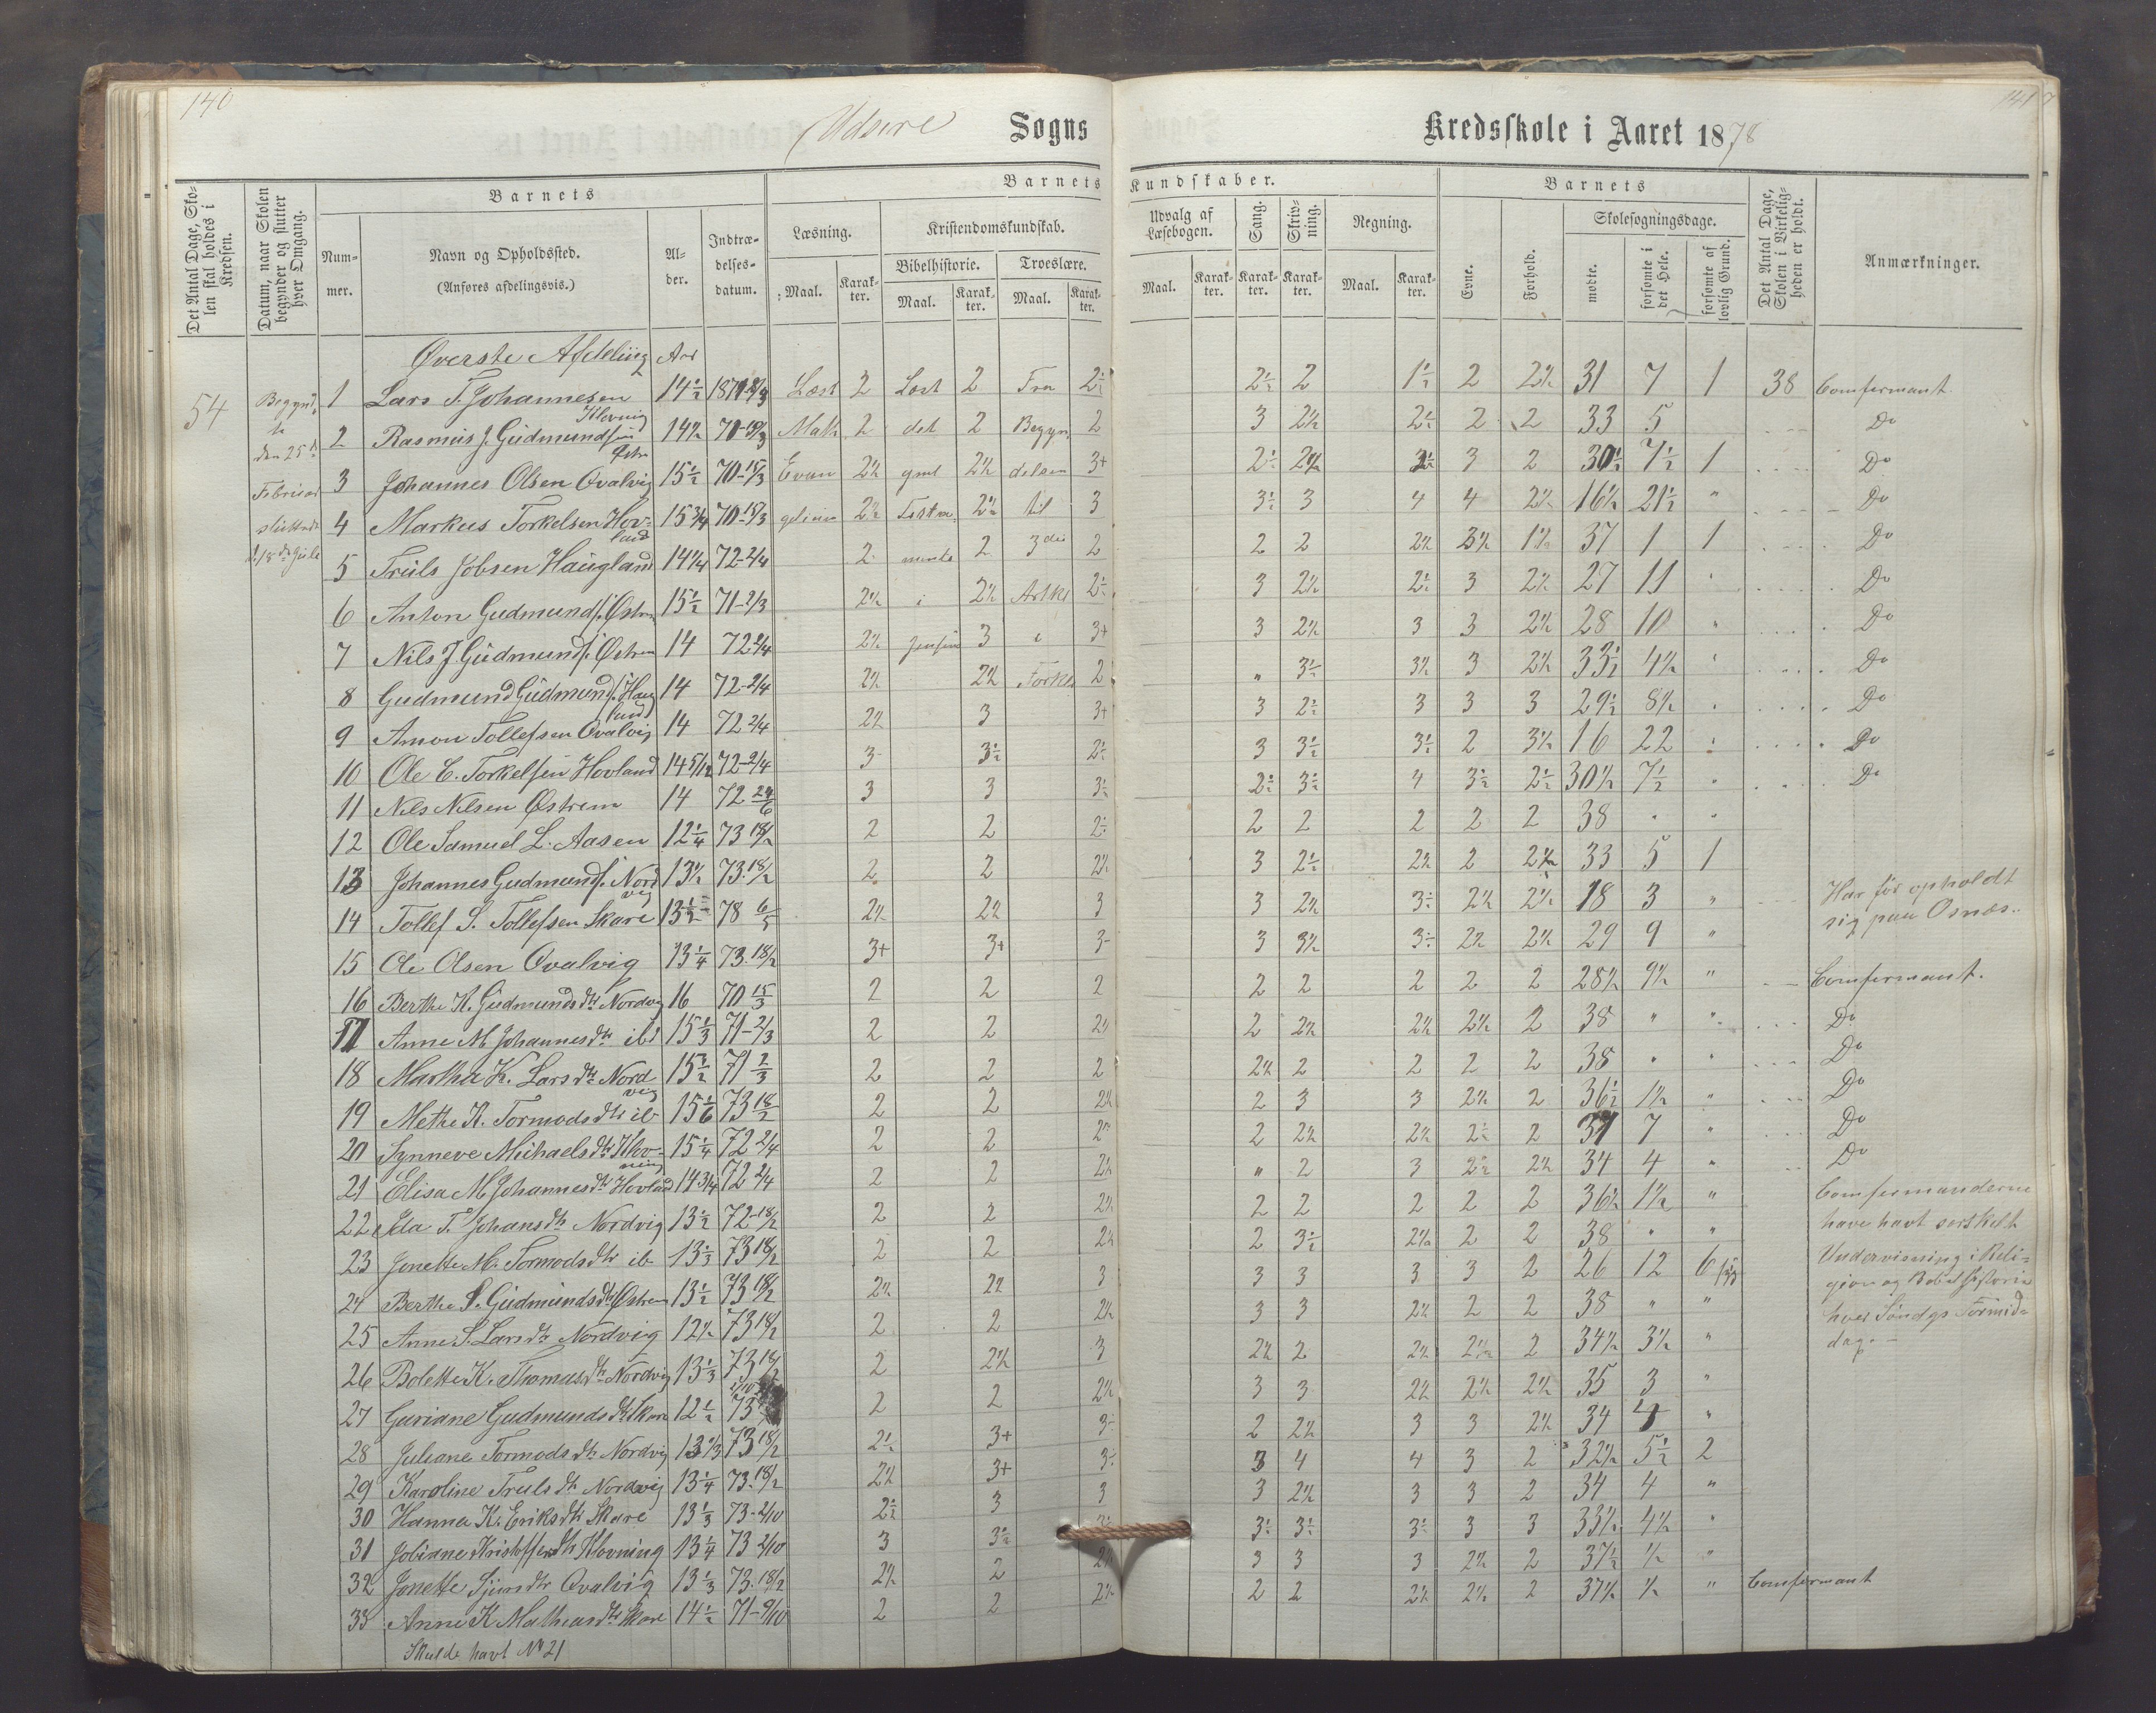 140
141
Udsire Sogns
Kredsskole i Aaret 1878
Det Antal Dage, Skolen skal holdes i Kredsen.
Datum, naar Skolen begynder og slutter hver Omgang.
Barnets
Nummer.
Navn og Opholdssted.
(Anføres afdelingsvis.)
Alder.
Indtrædelsesdatum.
Barnets Kundskaber.
Læsning.
Kristendomskundskab.
Bibelhistorie.
Troeslære.
Maal.
Karakter.
Maal.
Karakter.
Maal.
Karakter.
Udvalg af Læsebogen.
Sang.
Skrivning.
Regning.
Maal.
Karakter.
Karakter.
Karakter.
Maal.
Karakter.
Barnets
Evne.
Forhold.
Skolesøgningsdage.
mødte.
forsømte i det Hele.
forsømte af lovlig Grund.
Det Antal Dage, Skolen i Virkeligheden er holdt.
Anmærkninger.
Øverste Afdeling Aar
54
den 25
Februar
1 Lars T. Johannesen 14½ Læst 2 Læst 2 Fra 2 2 31 7 1 38 Comfermant
Klovning
2 Rasmus J. Gudmundsen 14½ 2 det 2 Begyn 2 3 2½ 2 2 33 5 Do
3 Johannes Olsen Qvalvig 15½ 70 15/3 Evan 2½ 3+ 3 2 30½ 7½ 1 Do
4 Markus Torkelsen Hovland 15¾ 70 15/3 2½ til 3 3 4 4 2½ 16½ 21½ Do
5 Truls Jobsen Haugland 14¼ 72-2/4 2 2 3die 2 2 2 2½ 1½ 37 1 1 Do
6 Anton Gudmunds. Østrem 15½ 71-2/3 2½ i 2½ Artkl 3 2½ 3 2½ 27 11 Do
7 Nils J Gudmunds. Østrem 14 72 2/4 2½ 3 i 3+ 3 2½ 3 3 2½ 28 10 Do
8 Gudmund Gudmunds. Haugland 14 72-2/4 2½ 2½ Forkl 2 3½ 3 2½ 33½ 4½ Do
9 Amon Tollefsen Qvalvig 14 72 2/4 2½ 3 3+ 3 3 3 3 29½ 8½ Do
10 Ole C. Torkelsen Hovland 14 5/12 72-2/4 3 3½ 3 3½ 3½ 2 3½ 16 22 Do
11 Nils Nilsen Østrem 14 72 24/6 3 3 4 3½ 2½ 30½ 7½ Do
12 Ole Samuel L. Aasen 12¼ 73 18/2 2 2 2 2 2 2 2 38
13 Johannes Gudmunds. Nordvig 13½ 73.18/2 2 2 2½ 3 2½ 2½ 2 2½ 33 5 1
14 Tollef S. Tollefsen Skare 13½ 78 6/5 2½ 2½ 3 3 2½ 2½ 2½ 18 3 " Har før opholdt
sig paa Osnæs..
15 Ole Olsen Qvalvig 13¼ 73.18/2 3+ 3+ 3 3½ 2½ 2½ 29 9 "
16 Berthe K. Gudmundsdtr Nordvig 16 70 15/3 2 2 2 2 2 2 2 2 28½ 9½ " Comfermant.
17 Anne M Johannesdtr ibd 15⅓ 71-2/3 2 2 2½ 2 2½ 2½ 2½ 2 38 " " Do
18 Martha K. Larsdtr Nordvig 15½ 71 2/3 2 2 2 2½ 2 2 2 2 38 Do
19 Methe K. Tormodsdtr ib 73 18/2 2 2 2½ 2 3 3 2½ 2 36½ 1½ " Do
20 Synneve Michaelsdtr Klovning 15¼ 72 2/4 2 2 2 2½ 2½ 2 31 7 " Do
21 Elisa M Johannesdtr Hovland 14¾ 72 2/4 2 2 2½ " 2 3 2½ 34 4 " Do
22 Ida T. Johansdtr Nordvig 13½ 72-18/2 2 2 2½ 2 2 2 2 2 36½ 1½ " Comfermanderne
have havt serskelt
23 Jonette M. Tormodsdtr ib 13⅓ 73 18/2 2 2 2½ 2 3½ 2½ 2 2 38 " "
Undervisning i Reli-
24 Berthe S. Gudmundsdtr Østrem 13½ 73 18/2 2½ 2½ 3 3 3 3 3 2 26 12 6
gion og Bibelhistorie
25 Anne S. Larsdtr Nordvig 12½ 73 18/2 2 2 2½ 3 3 2½ 2 2 38 " "
hver Søndgs Formid-
dag.
26 Bolette K. Thomasdtr Nordvig 13⅓ 73 18/2 2 2½ 3 2½ 2 2½ 2½ 2 34½ 3½ "
27 Guriane Gudmundsdtr Skare 12½ 73 2 2 2½ 3 3 2½ 2½ 2½ 35 3 "
28 Juliane Tormodsdtr Nordvig 13⅓ 73 18/2 2½ 3+ 2 2½ 3 3 2½ 34 4 "
29 Karoline Trulsdtr Nordvig 13¼ 73.18/2 2½ 3+ 3 4 4 3 2 32½ 5½ 2
30 Hanna K. Eriksdtr Skare 13⅓ 73-2/10 2½ 3 3 3 2½ 3 3 2 34 4 "
31 Jobiane Kristoffersdtr Klovning 13¼ 73 2/10 3 3½ 3 3 33½ 4½ "
32 Jonette Sjursdtr Qvalvig 13⅓ 73.18/2 2½ 2 3 3 3 2½ 2 37½ ½ "
33 Anne K Mathiasdtr Skare 14½ 71-9/10 2 2 2½ 2 2 2½ 2½ 2 37½ ½ " Comfermant
Skulde havt No 21